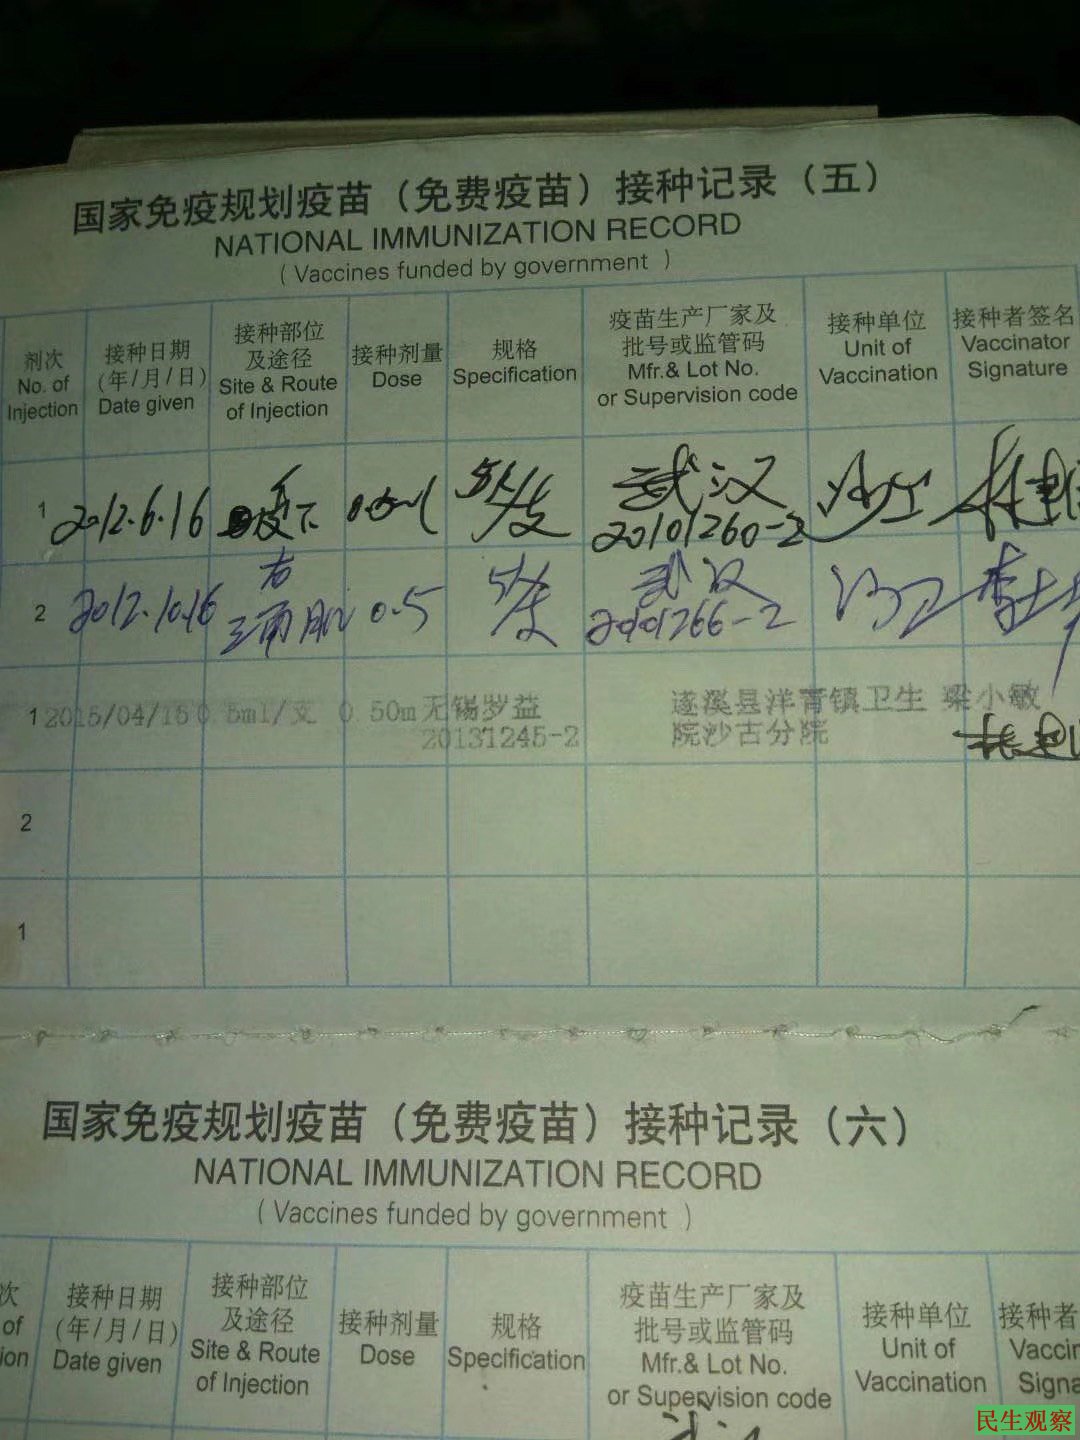 国家免疫规划疫苗（免费疫苗）接种记录（五）
NATIONAL IMMUNIZATION RECORD
( Vaccines funded by government )
剂次
No. of
Injection
接种日期
（年/月/日）
Date given
接种部位
及途径
Site & Route
of Injection
接种剂量
Dose
规格
Specification
疫苗生产厂家及
批号或监管码
Mfr.& Lot No.
or Supervision code
接种单位
Unit of
Vaccination
接种者签名
Vaccinator
Signature
1 2012.6.16 皮下 武汉
20101260-2
2 2012.10.16 右 0.5 武汉
三角肌
1 2015/04/15 0.5ml/支 0.50m 无锡罗益 遂溪县洋青镇卫生 梁小敏
20131245-2 院沙古分院
2
1
国家免疫规划疫苗（免费疫苗）接种记录（六）
NATIONAL IMMUNIZATION RECORD
( Vaccines funded by government )
次
of
ion
接种日期
（年/月/日）
Date given
接种部位
及途径
Site & Route
of Injection
接种剂量
Dose
规格
Specification
疫苗生产厂家及
批号或监管码
Mfr.& Lot No.
or Supervision code
接种单位
Unit of
Vaccination
接种者
Vaccin
Signa
武汉
民生观察